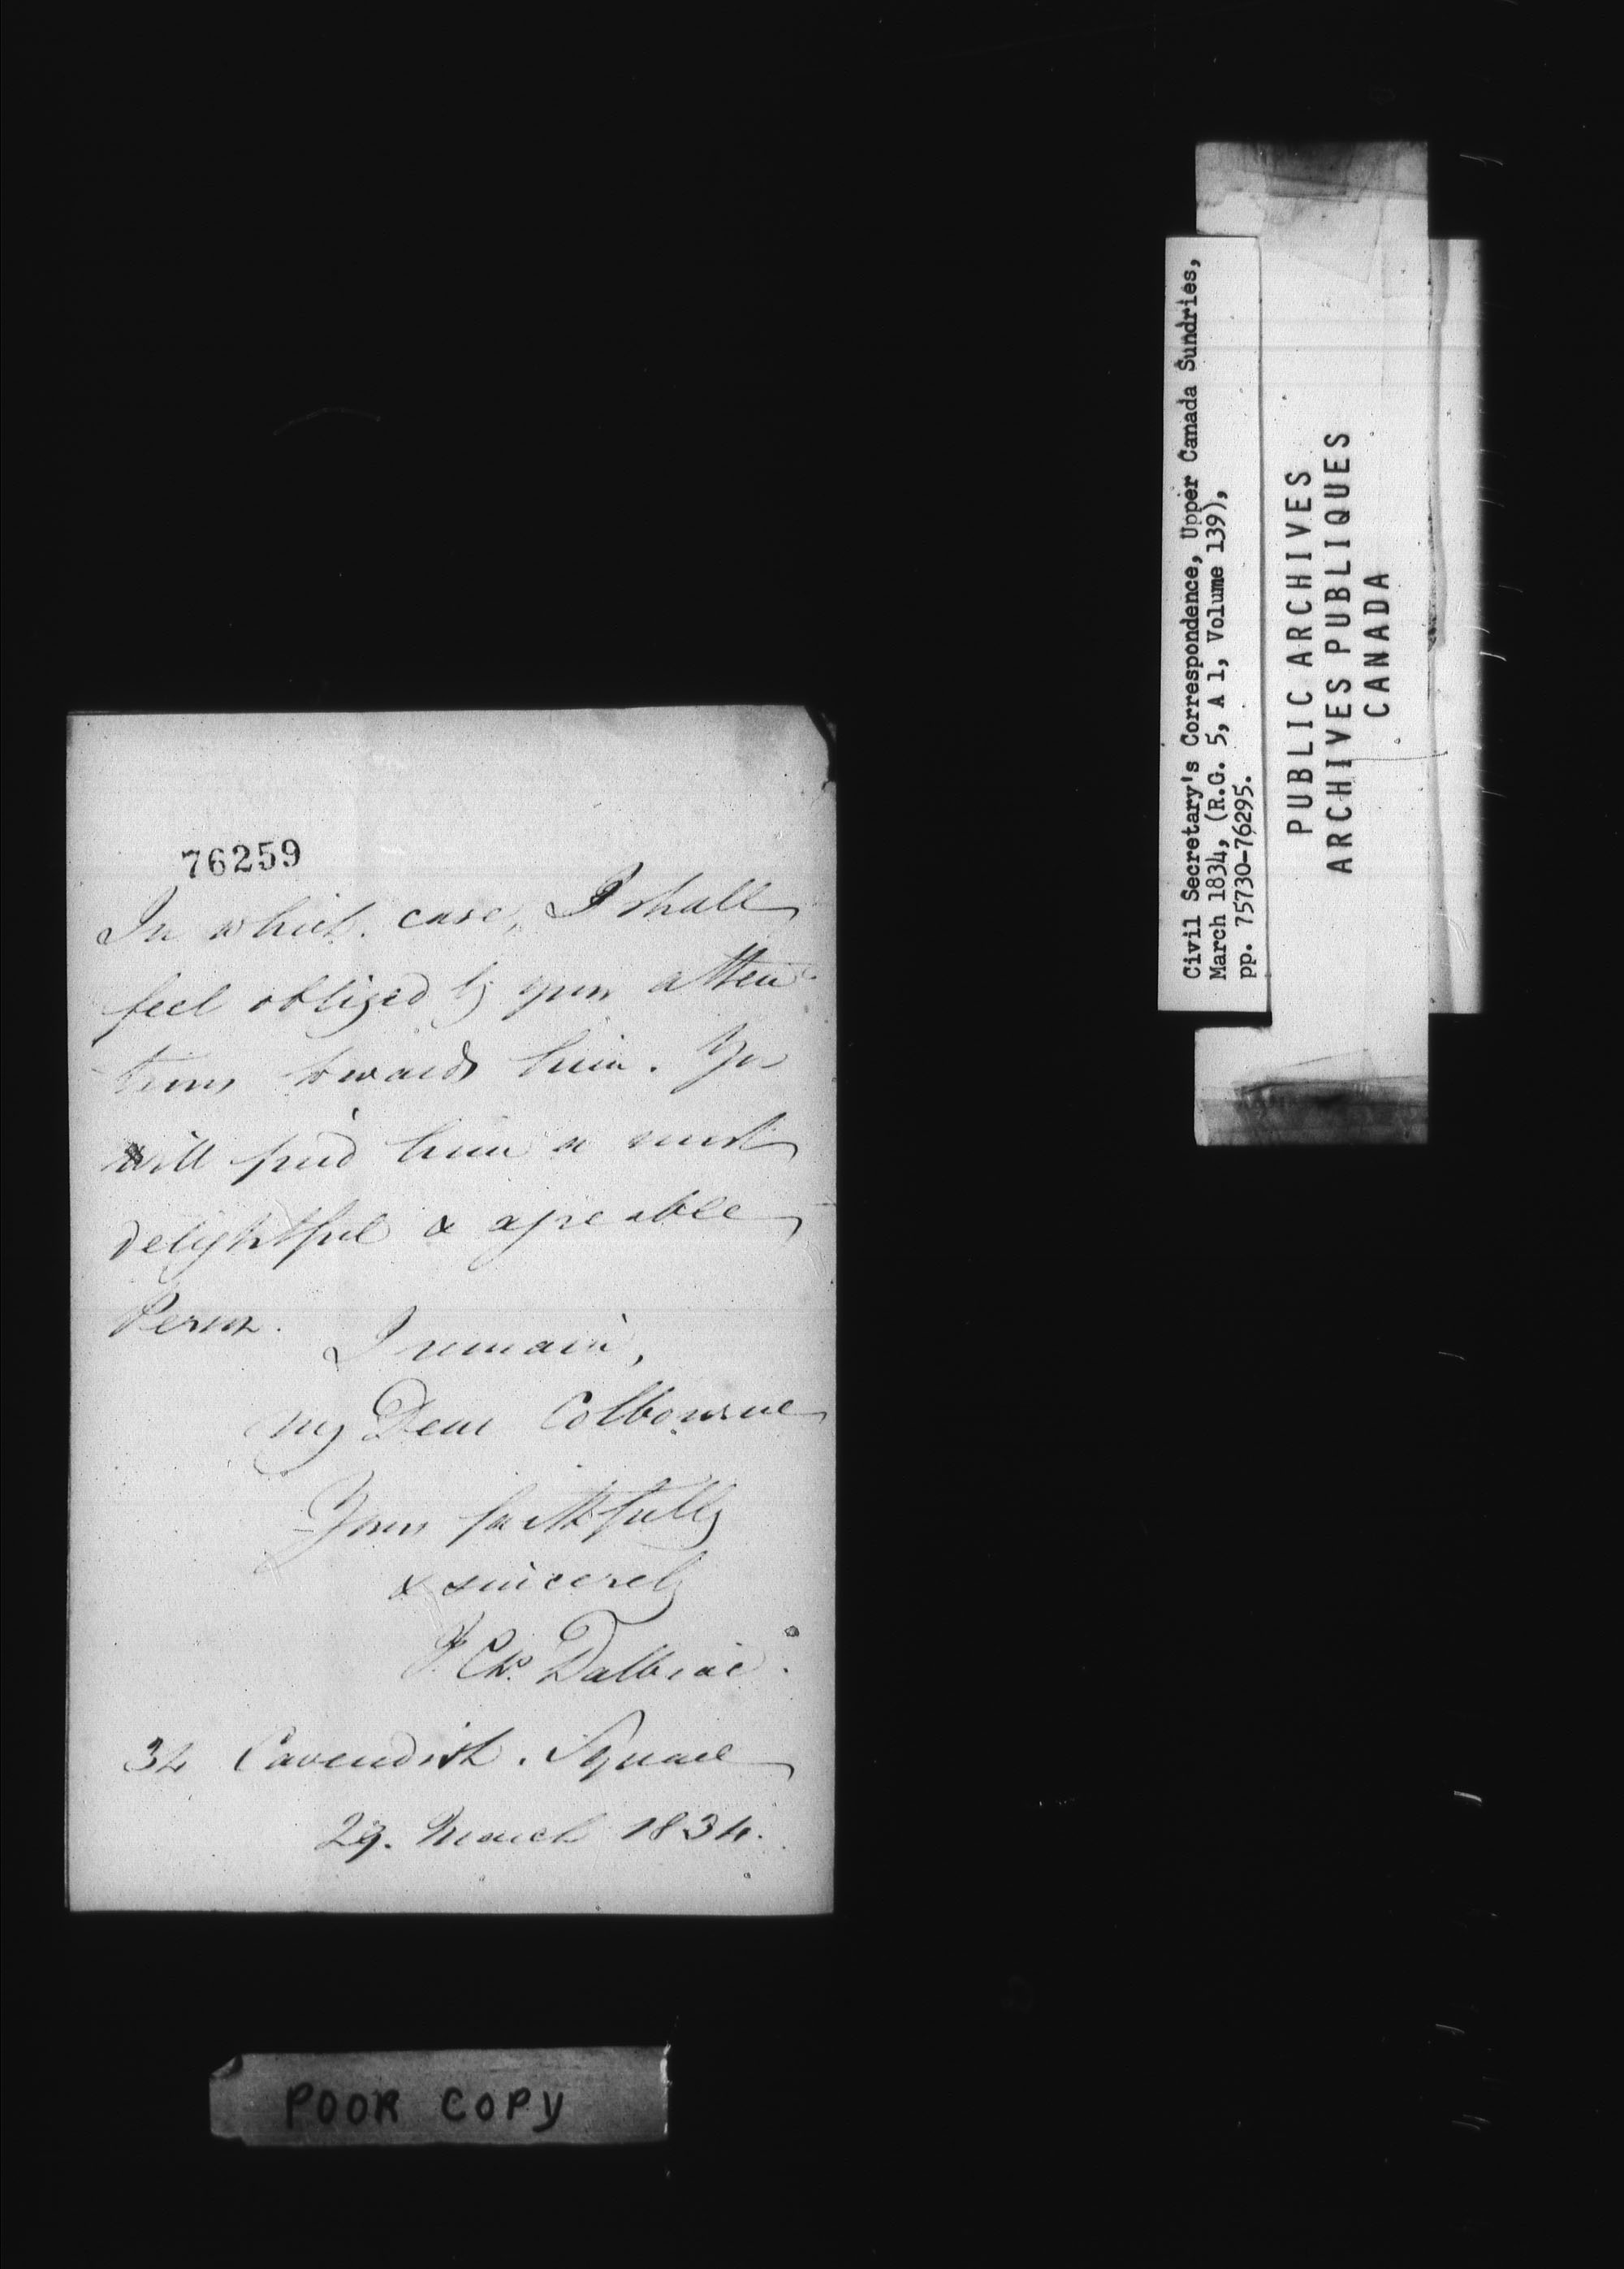 76259
In which case, I shall
feel obliged by your atten
tions towards him. You
will find him a most
delightful & agreable
Person.
I remain,
My Dear Colbourne
Yours faithfully
& sincerely
J. Chs. Dalbiac.
34 Cavendish Square
29. March 1834.
POOR COPY
Civil Secretary's Correspondence, Upper Canada Sundries,
March 1834, (R.G. 5, A 1, Volume 139),
pp. 75730-76295.
PUBLIC ARCHIVES
ARCHIVES PUBLIQUES
CANADA